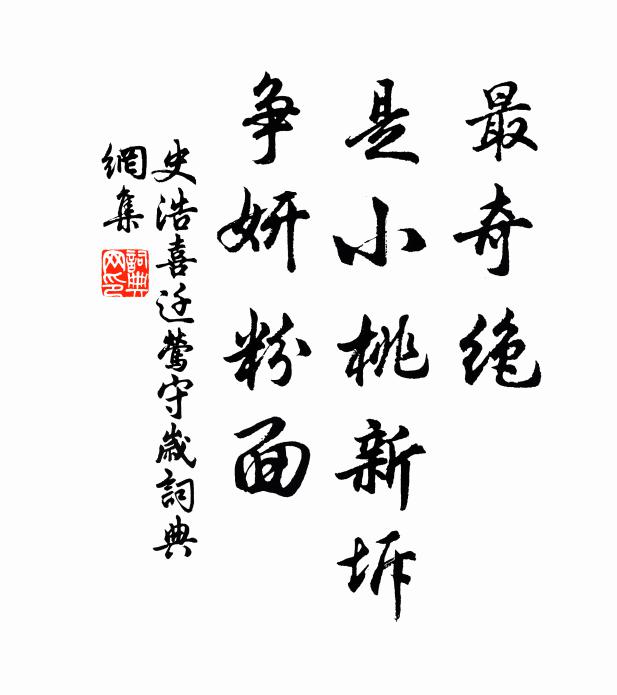 最奇绝
是小桃新坼
争妍粉面
史浩喜迁莺守歲詞典
網集
詞典
网印